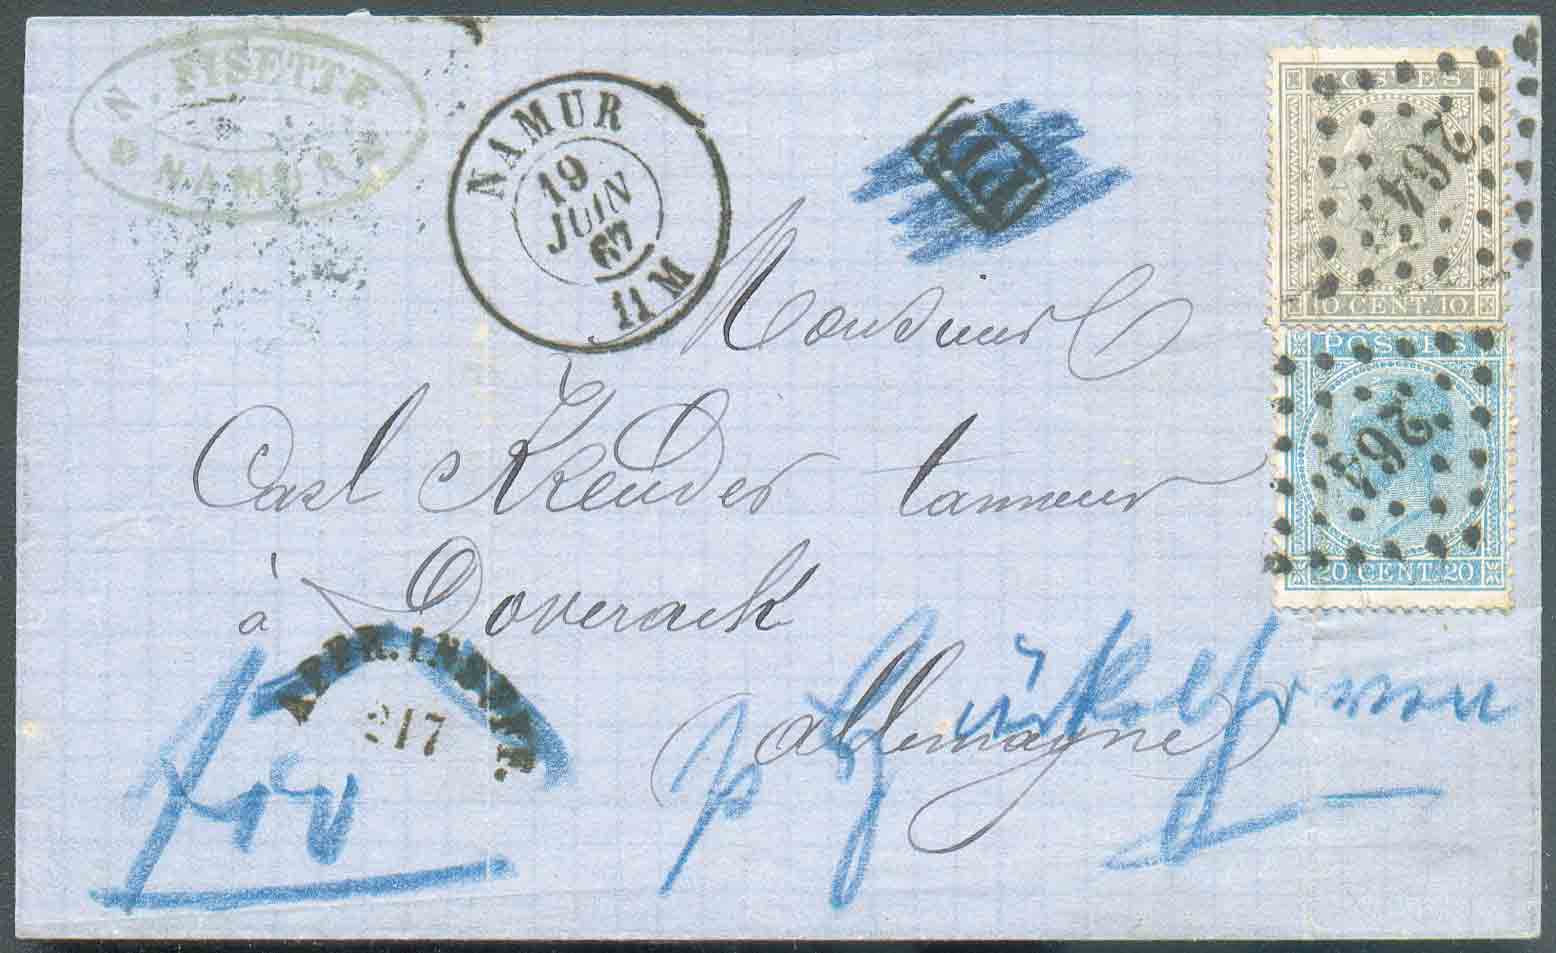 N. FISETTE
NAMUR
NAMUR
19
JUIN
67
11 M
PD
POSTES
264
10 CENT. 10
POSTES
264
20 CENT. 20
Monsieur
Carl Kreuder tanneur
à Doverack
allemagne
AFFR. INSUFF.
217
fro
p